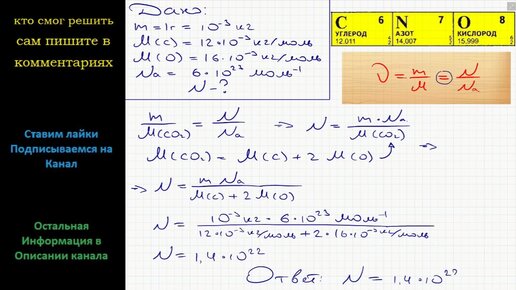 кто смог решить
сам пишите в
комментариях
Ставим лайки
Подписываемся на
Канал
Остальная
Информация в
Описании канала
Дано:
m = 1г = 10⁻³ кг
M(C) = 12·10⁻³ кг/моль
M(O) = 16·10⁻³ кг/моль
Na = 6·10²³ моль⁻¹
N-?
C 6 N 7 O 8
УГЛЕРОД АЗОТ КИСЛОРОД
12,011 14,007 15,999
ν = m/M = N/Na
m/M(CO₂) = N/Na => N = m·Na/M(CO₂)
M(CO₂) = M(C) + 2 M(O) =>
=> N = m Na/M(C) + 2 M(O)
N = 10⁻³ кг · 6·10²³ моль⁻¹/12·10⁻³ кг/моль + 2·16·10⁻³ кг/моль
N = 1,4·10²²
Ответ: N = 1,4·10²²